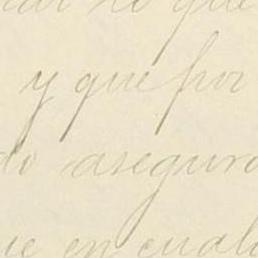 y que por
do asegura
ue en cual